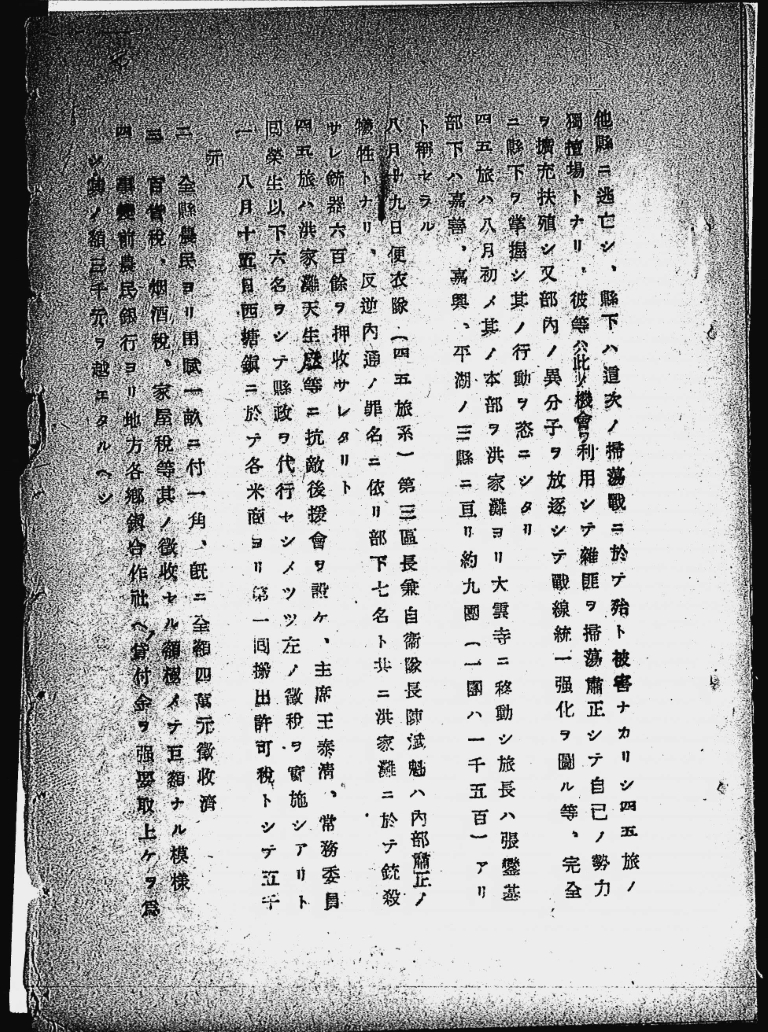 他縣ニ逃亡シ、縣下ハ道次ノ掃蕩戰ニ於テ殆ト被害ナカリシ四五旅ノ
獨擅場トナリ、彼等ハ此ノ機會ヲ利用シテ雜匪ヲ掃蕩肅正シテ自己ノ勢力
ヲ擴充扶殖シ又部內ノ異分子ヲ放逐シテ戰線統一强化ヲ圖ル等、完全
ニ縣下ヲ掌握シ其ノ行動ヲ恣ニシタリ
四五旅ハ八月初メ其ノ本部ヲ洪家灘ヨリ大雲寺ニ移動シ旅長ハ張鑾基
部下ハ嘉善、嘉興、平湖ノ三縣ニ亘リ約九團（一團ハ一千五百）アリ
ト稱セラル
八月廿九日便衣隊（四五旅系）第三區長兼自衞隊長陳 魁ハ內部肅正ノ
犧牲トナリ、反逆內通ノ罪名ニ依リ部下七名ト共ニ洪家灘ニ於テ銃殺
サレ銃器六百餘ヲ押收サレタリト
四五旅ハ洪家灘天生 等ニ抗敵後援會ヲ設ケ、主席王泰淸、常務委員
同榮生以下六名ヲシテ縣政ヲ代行セシメツツ左ノ徵稅ヲ實施シアリト
一　八月十五日西塘鎭ニ於テ各米商ヨリ第一回搬出許可稅トシテ五千
元
二　全縣農民ヨリ田賦一畝ニ付一角、旣ニ全額四萬元徵收濟
三　百貨稅、烟酒稅、家屋稅等其ノ徵收セル額極メテ巨額ナル模樣
四　事變前農民銀行ヨリ地方各鄕鎭合作社ヘ貸付金ヲ强要取上ケヲ爲
シ其ノ額三千元ヲ越エタルヘシ